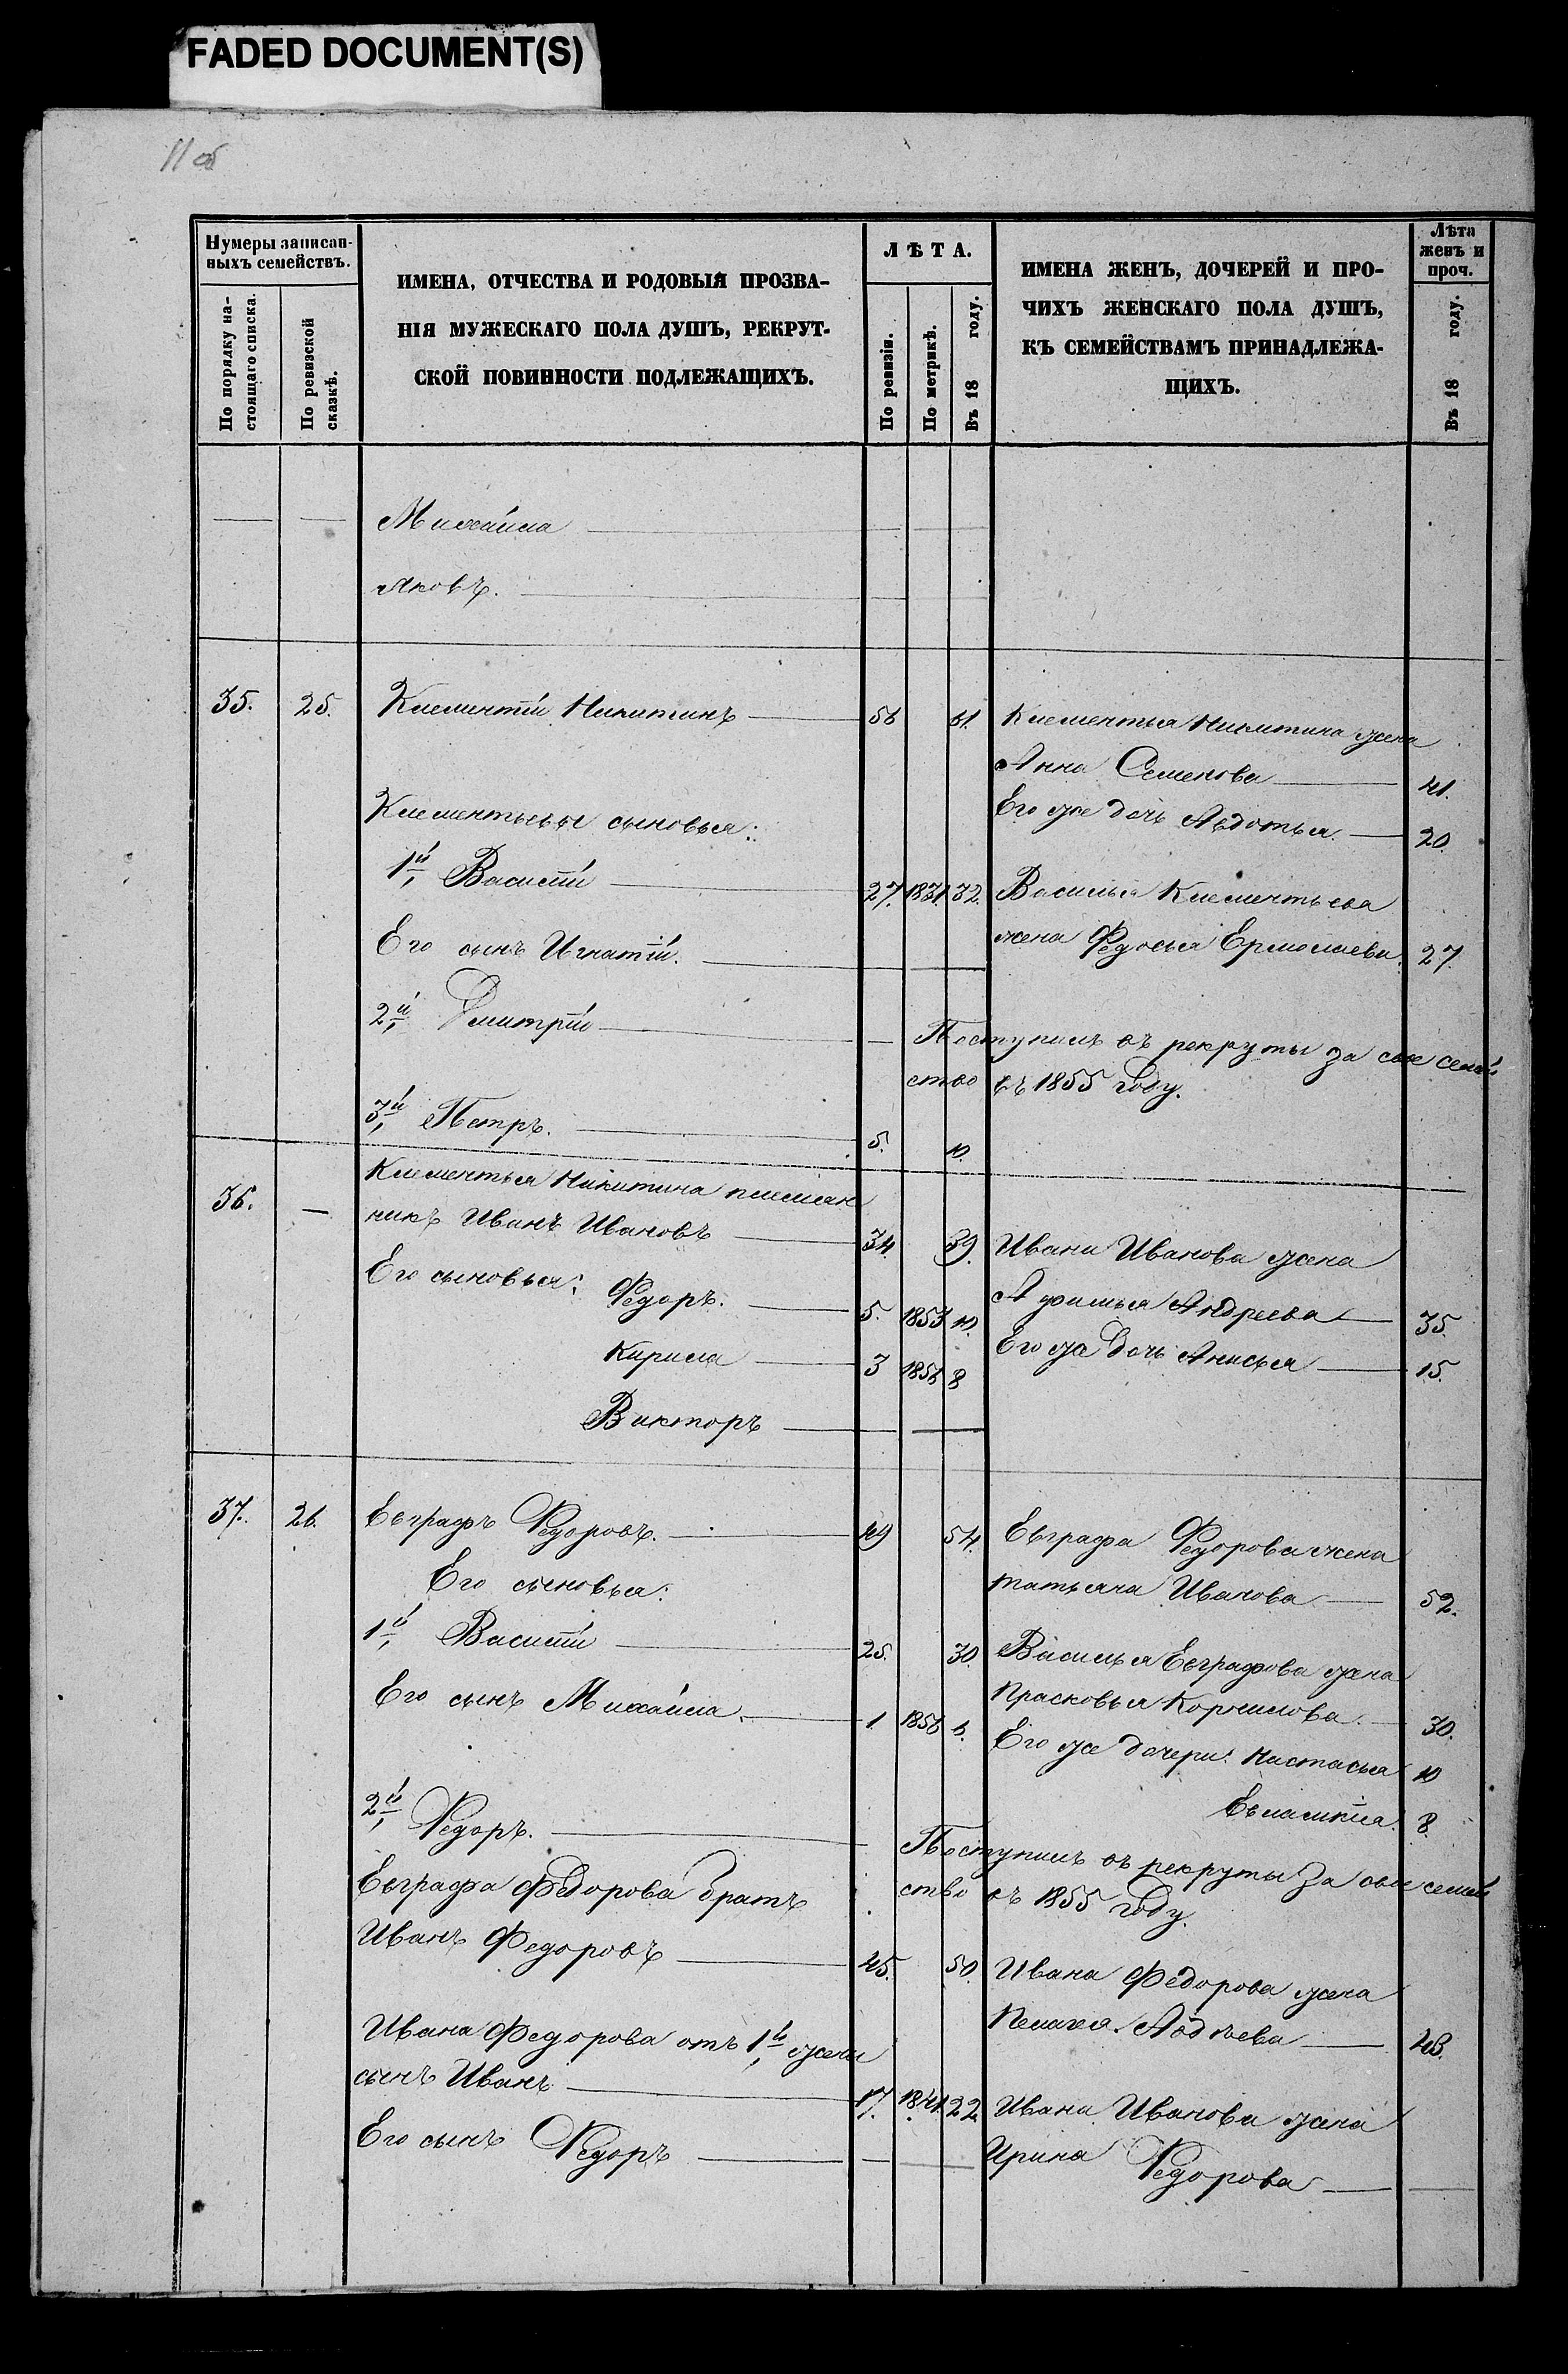 FADED DOCUMENT(S)
11 об
Нумеры записан-
ныхъ семействъ.
По порядку на-
стоящаго списка.
По ревизской
сказкѣ.
ИМЕНА, ОТЧЕСТВА И РОДОВЫЯ ПРОЗВА-
НІЯ МУЖЕСКАГО ПОЛА ДУШЪ, РЕКРУТ-
СКОЙ ПОВИННОСТИ ПОДЛЕЖАЩИХЪ.
ЛѢТА.
По ревизіи.
По метрикѣ.
Въ 18 году.
ИМЕНА ЖЕНЪ, ДОЧЕРЕЙ И ПРО-
ЧИХЪ ЖЕНСКАГО ПОЛА ДУШЪ,
КЪ СЕМЕЙСТВАМЪ ПРИНАДЛЕЖА-
ЩИХЪ.
Лѣта
женъ и
проч.
Въ 18 году.
Михайла
Яковъ.
35. 25. Клементій Никитинъ 56 61. Клементья Никитина жена
Анна Семенова 41.
Клементьевы сыновья: Его же дочь Авдотья 20.
1й Василій 27. 1831. 32. Василья Клементьева
Его сынъ Игнатій. жена Федосья Ермолаева. 27.
2й Дмитрій Поступилъ въ рекруты за свое семей
ство въ 1855 году.
3й Петръ. 5. 10.
36. Клементья Никитина племян
никъ Иванъ Ивановъ 34. 39. Ивана Иванова жена
Его сыновья: Федоръ. 5. 1853 10. Афимья Андреева 35.
Кирила 3 1856 8 Его же дочь Анисья 15.
Викторъ
37. 26. Евграфъ Федоровъ. 49 54. Евграфа Федорова жена
Его сыновья: Татьяна Иванова 52.
1й Василій 25. 30. Василья Евграфова жена
Его сынъ Михайла 1. 1856 6. Прасковья Корнилова 30.
Его же дочери: Настасья 10
Евлампія. 8.
2й Федоръ. Поступилъ въ рекруты за свое семей
ство въ 1855 году.
Евграфа Федорова братъ
Иванъ Федоровъ 45. 50. Ивана Федорова жена
Пелагея 48.
Ивана Федорова отъ 1й жены
сынъ Иванъ 17. 1841. 22. Ивана Иванова жена
Его сынъ Федоръ Ирина Федорова